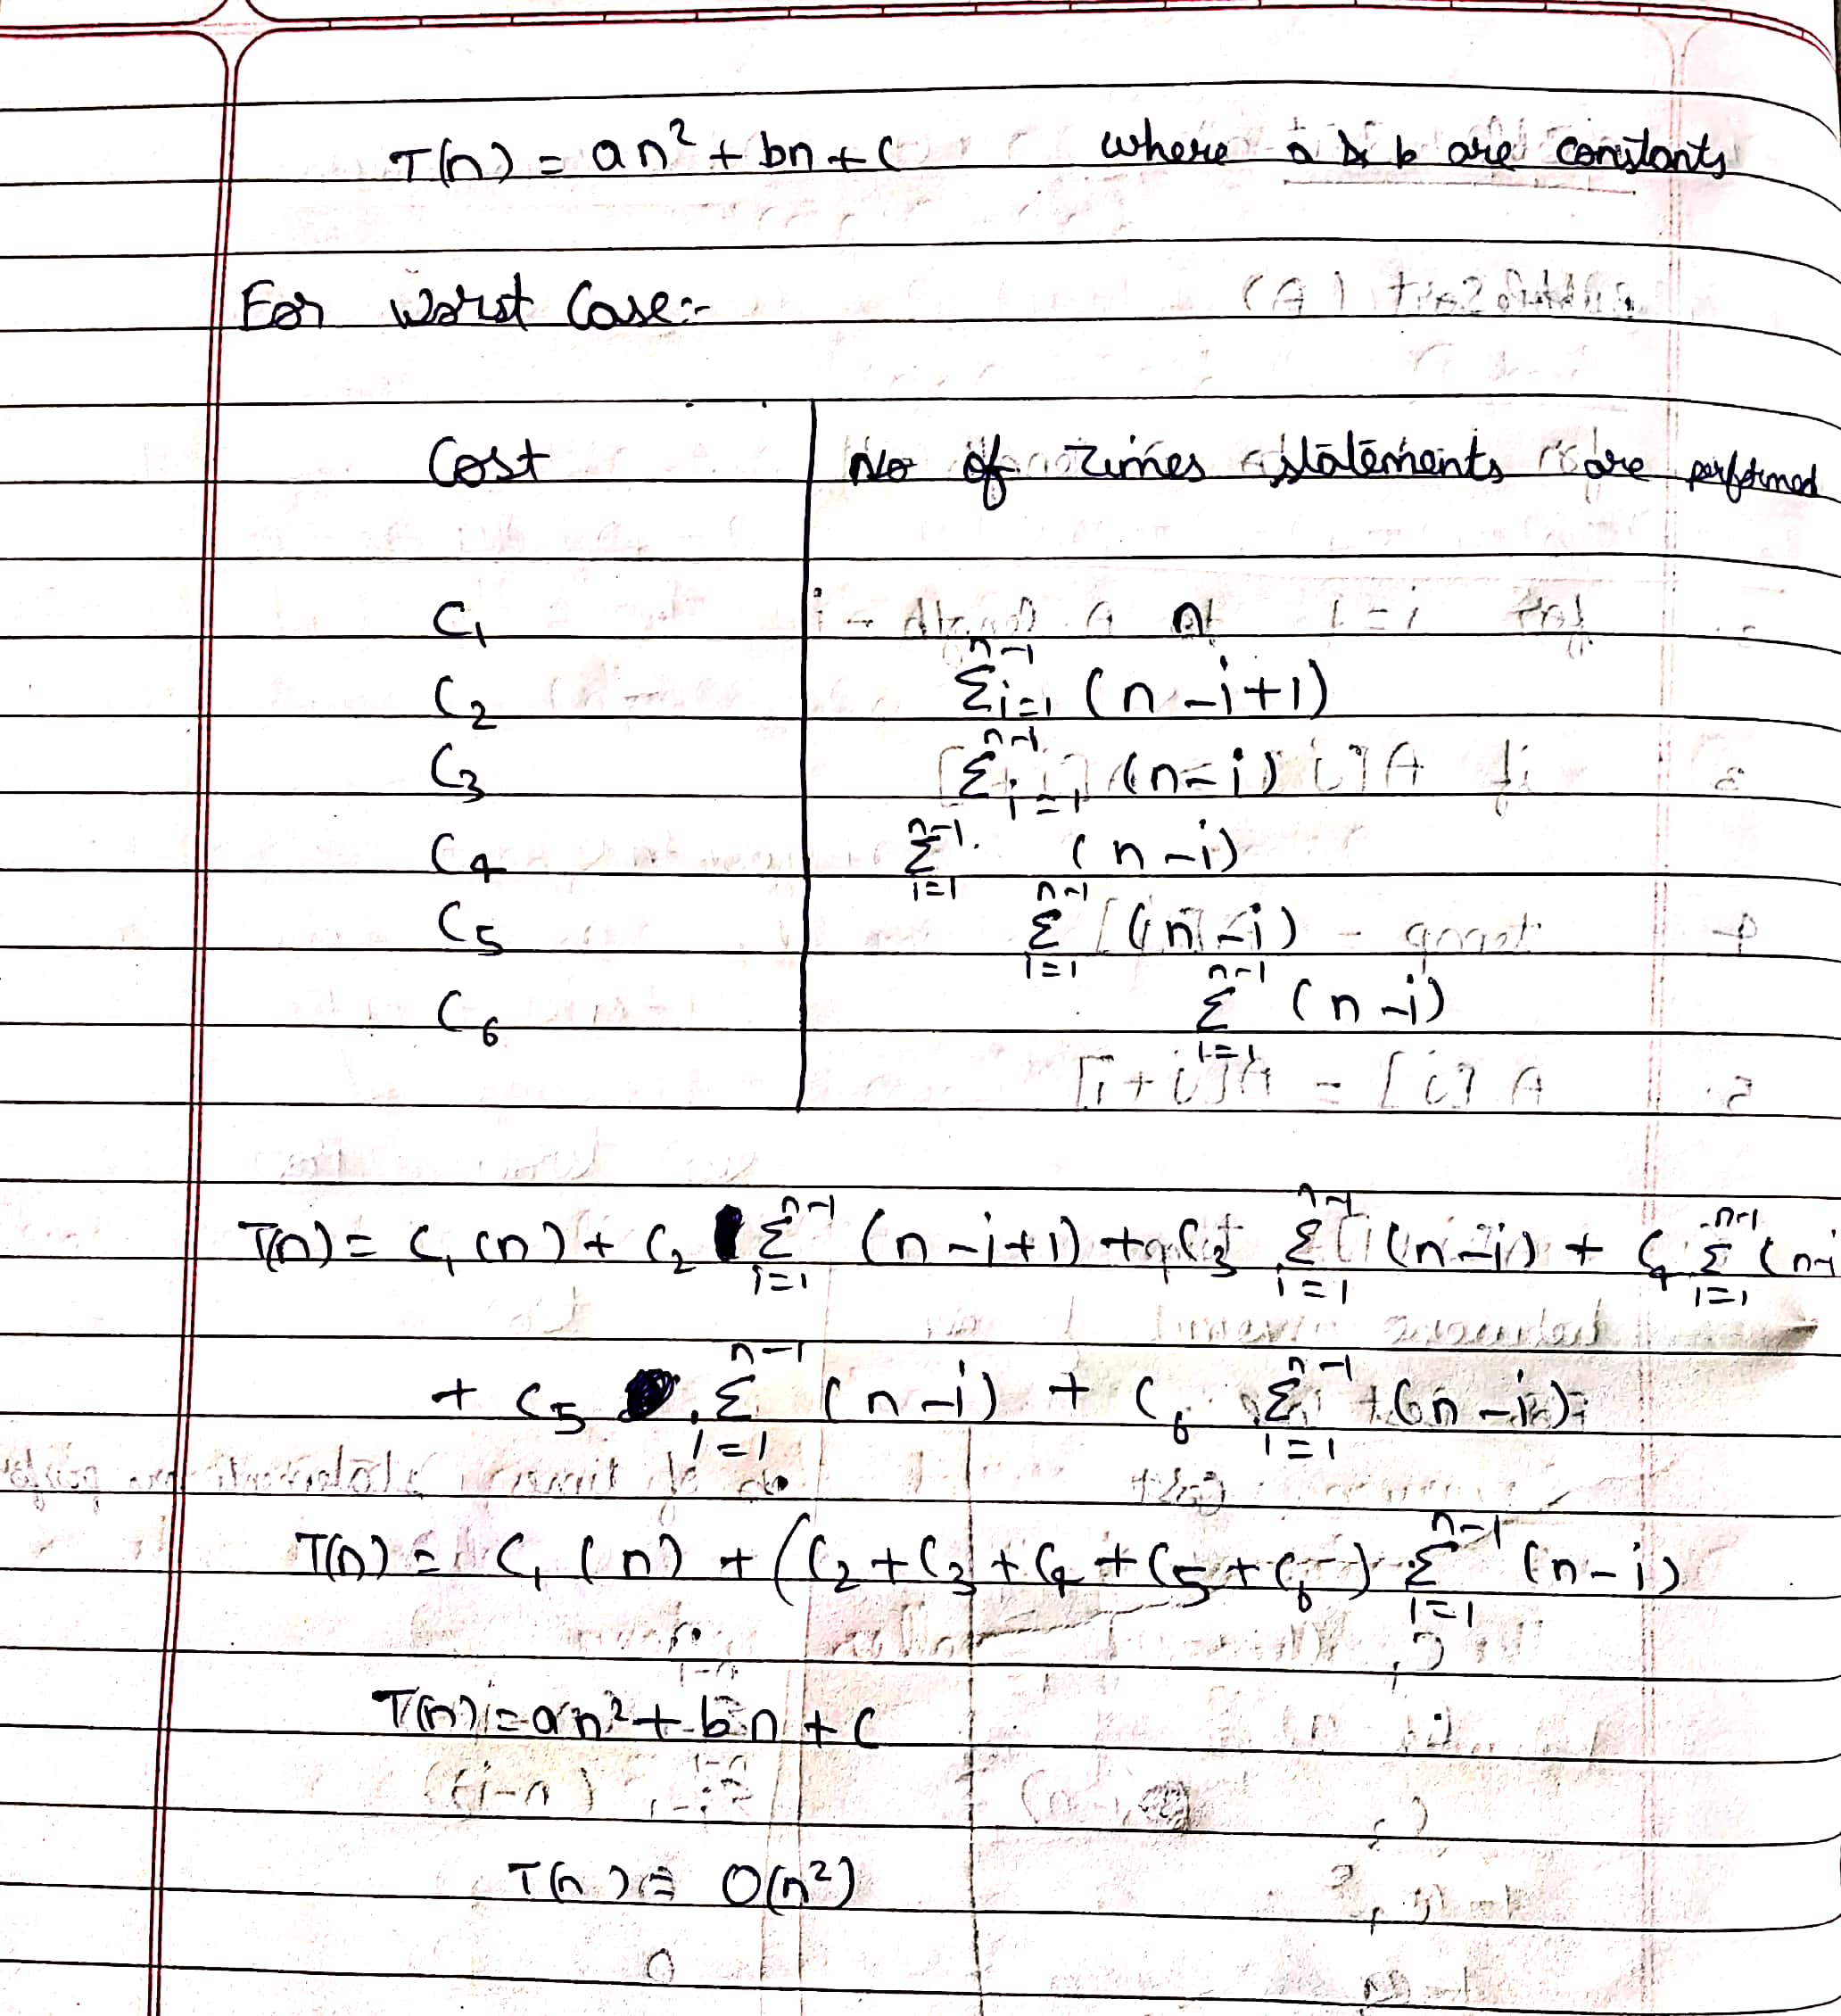 T(n) = an² + bn + c where a & b are constants
For Worst Case:-
Cost No of times statements are performed
C₁ n
C₂ Σᵢ₌₁ⁿ⁻¹ (n-i+1)
C₃ Σᵢ₌₁ⁿ⁻¹ (n-i)
C₄ Σᵢ₌₁ⁿ⁻¹ (n-i)
C₅ Σᵢ₌₁ⁿ⁻¹ (n-i)
C₆ Σᵢ₌₁ⁿ⁻¹ (n-i)
T(n) = C₁ (n) + C₂ Σᵢ₌₁ⁿ⁻¹ (n-i+1) + C₃ Σᵢ₌₁ⁿ⁻¹ (n-i) + C₄ Σᵢ₌₁ⁿ⁻¹ (n-i
+ C₅ Σᵢ₌₁ⁿ⁻¹ (n-i) + C₆ Σᵢ₌₁ⁿ⁻¹ (n-i)
T(n) = C₁ (n) + (C₂ + C₃ + C₄ + C₅ + C₆) Σᵢ₌₁ⁿ⁻¹ (n-i)
T(n) = an² + bn + c
T(n) = O(n²)